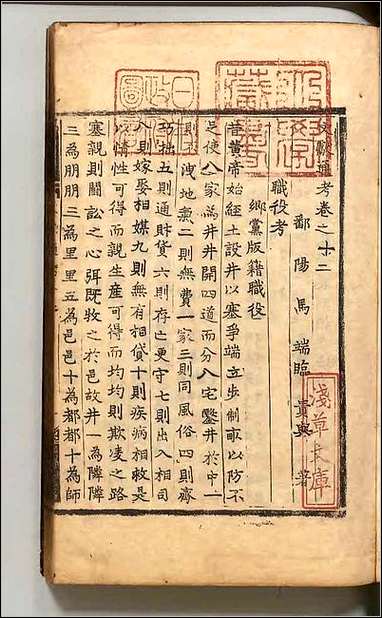 文獻通考卷之十二
鄱陽馬端臨貴與著
職役考
鄉黨版籍職役
昔黃帝始經土設井以塞爭端立步制畝以防不
足使八家為井井開四道而分八宅鑿井於中一
則不洩地氣二則無費一家三則同風俗四則齊
巧拙五則通財貨六則存亡更守七則出入相司
八則嫁娶相媒九則無有相貸十則疾病相救是
以情性可得而親生產可得而均均則欺凌之路
塞親則鬭訟之心弭既牧之於邑故井一為隣隣
三為朋朋三為里里五為邑邑十為都都十為師
淺草文庫